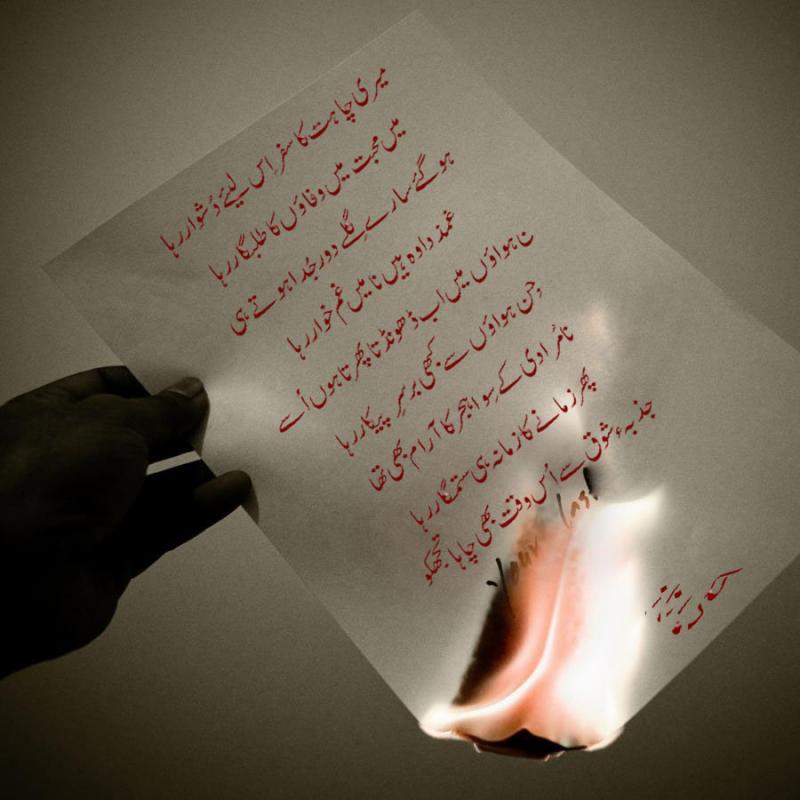 میری چاہت کا سفر اِس لیئے دُشوار رہا
میں محبت میں وفاوَں کا طلبگار رہا
ہو گئے سارے گِلے دور جُدا ہوتے ہی
غمزدا وہ ہیں نا میں غم خوار رہا
نا ہواوَں میں اب ڈھونڈتا پھرتا ہوں اُسے
جِن ہواوَں سے کبھی برسرِ پیکار رہا
نامُرادی کے سِوا ہجر کا آرام بھی تھا
پھر زمانے کا زمانہ ہی ستمگار رہا
جذبہء شوق سے اُس وقت بھی چاہا تجھکو
Your last